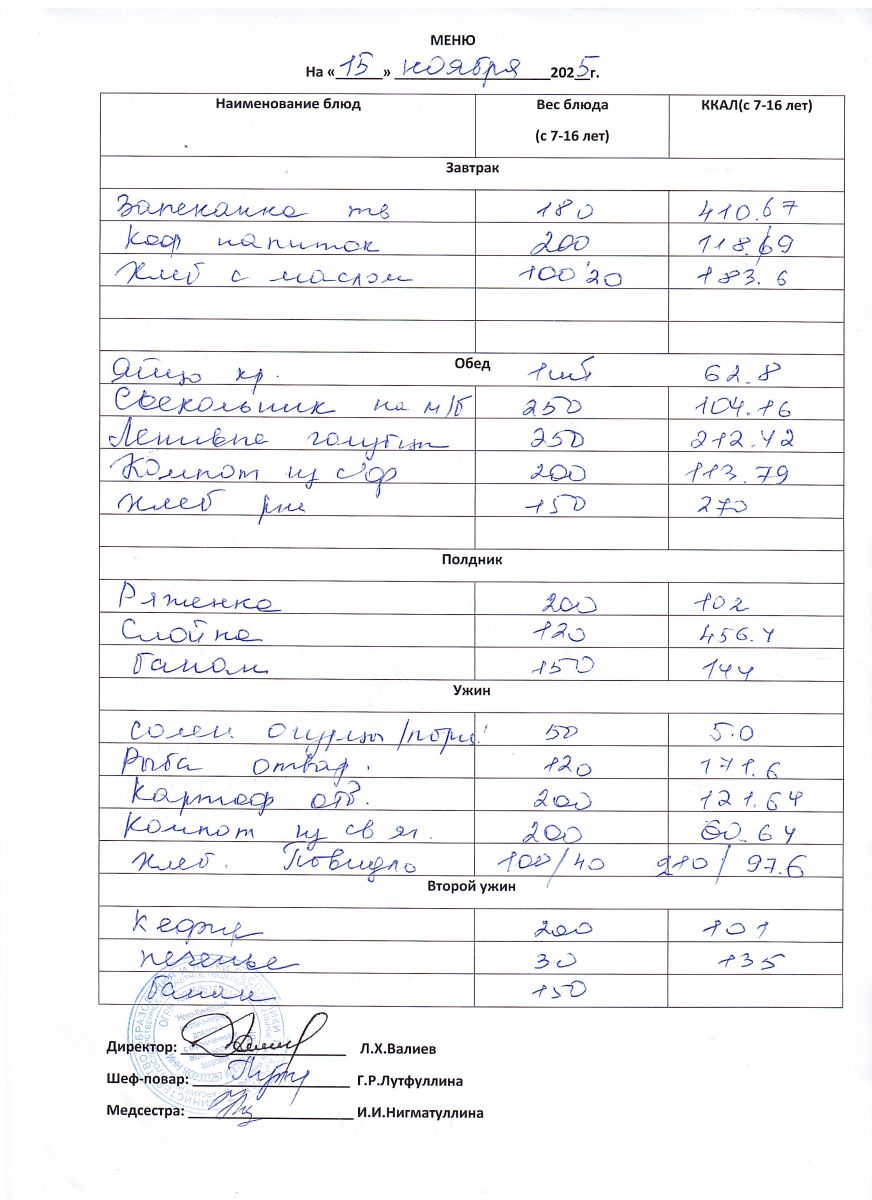 МЕНЮ
На «15» ноября 2025г.
Наименование блюд Вес блюда (с 7-16 лет) ККАЛ(с 7-16 лет)
Завтрак
Запеканка тв 180 410.67
Коф напиток 200 118.69
Хлеб с маслом 100/20 183.6
Обед
Яйцо кр. 1шт 62.8
Свекольник на м/б 250 104.16
Ленивые голубцы 250 212.42
Компот из с/ф 200 113.79
Хлеб рж 150 270
Полдник
Ряженка 200 102
Слойка 120 456.4
банан 150 144
Ужин
солен огурцы/порц. 50 5.0
Рыба отвар. 120 171.6
Картоф отв. 200 121.64
Компот из св яг. 200 60.64
Хлеб. Повидло 100/40 210/97.6
Второй ужин
Кефир 200 101
печенье 30 135
банан 150
Директор: Л.Х.Валиев
Шеф-повар: Г.Р.Лутфуллина
Медсестра: И.И.Нигматуллина